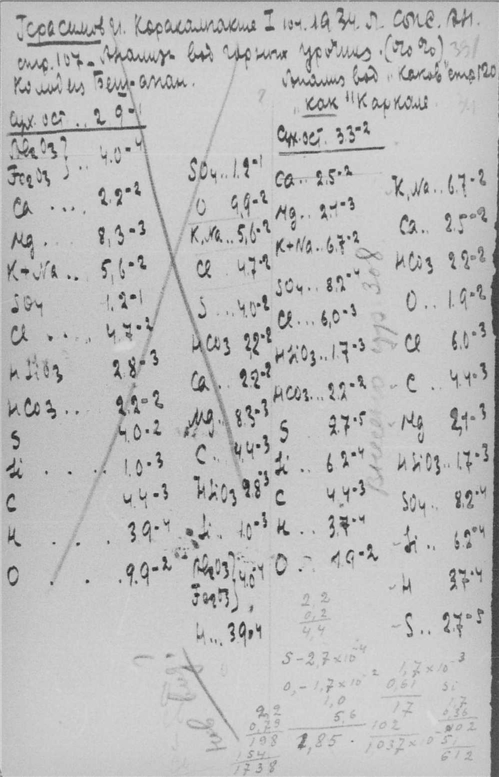 Герасимов И. Каракалпакия I 1934. Л.
стр. 107 – Анализ вод горных (%%)
Колодец Бещ-апан.
Сух. ост. .. 2.9-1
Al2O3 }
Fe2O3 } .. 4.0-4
Ca .... 2.2-2
Mg .... 8,3-3
K+Na .. 5,6-2
SO4 1.2-1
Cl ... 4.7-2
HSiO3 2.8-3
HCO3 .. 2.2-2
S 4.0-2
Si .... 1.0-3
C 4.4-3
H .... 3.9-4
O ... 9.9-2
SO4 .. 1.2-1
O 9,9-2
K,Na .. 5,6-2
Cl 4.7-2
S .. 4.0-2
HCO3 2.2-2
Ca .. 2.2-2
Mg .. 8.3-3
C .. 4.4-3
HSiO3 2.8-3
Si .. 1.0-3
Al2O3 }
Fe2O3 } 4.0-4
H ... 3.9-4
Анализ вод "Каков" стр 120
"как" Каркале
Сух. ост. 3.3-2
Ca .. 2.5-2
Mg .. 2.1-3
K+Na .. 6.7-2
SO4 .. 8.2-4
Cl ... 6,0-3
HSiO3 .. 1.7-3
HCO3 .. 2.2-2
S 2.7-5
Si .. 6.2-4
C 4.4-3
H .. 3.7-4
O .. 1.9-2
K,Na .. 6.7-2
Ca .. 2.5-2
HCO3 2.2-2
O .. 1.9-2
Cl 6.0-3
- C 4.4-3
Mg 2,1-3
HSiO3 .. 1.7-3
SO4 .. 8.2-4
- Si .. 6.2-4
- H 3.7-4
- S .. 2.7-5
2,2
0,2
4,4
S - 2,7 x 10-4
O, - 1,7 x 10-2
1,0
5,6
2,85.
1,7 x 10-3
0,61
17
102
1037 x 10
Si
1,7
0,36
102
51
612
2,2
0,79
198
154
1738